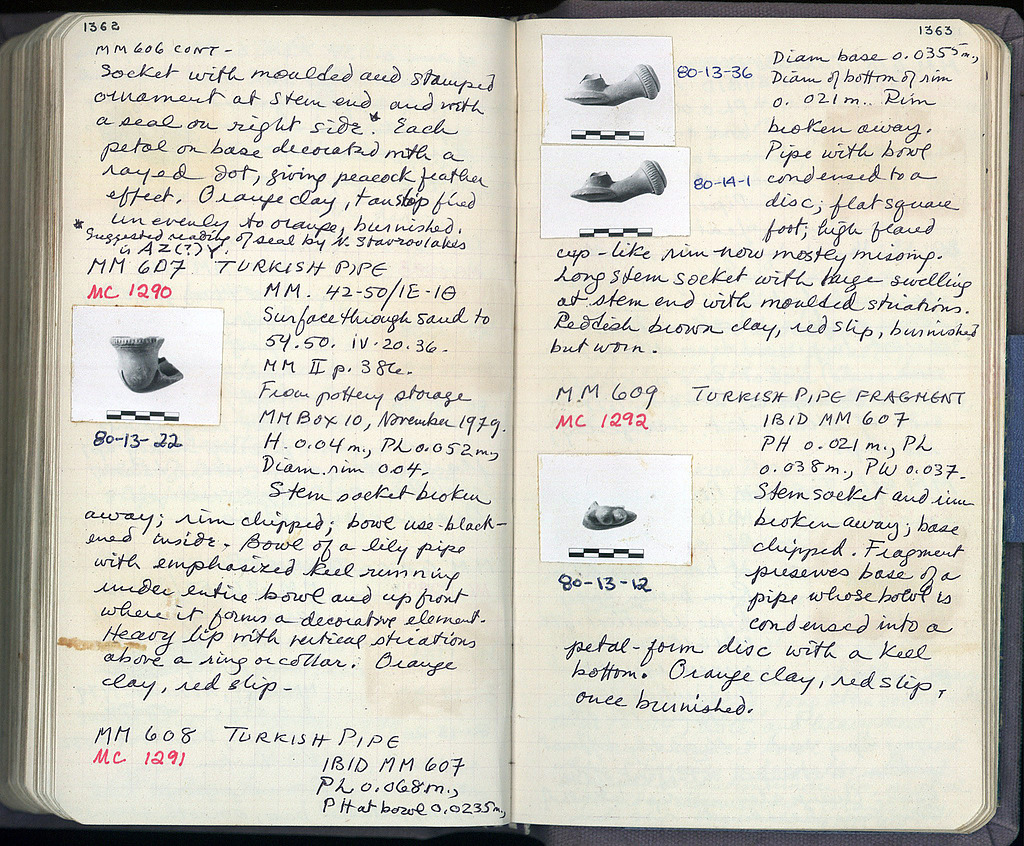 1362
MM 606 CONT -
Socket with moulded and stamped
ornament at stem end and with
a seal on right side.* Each
petal on base decorated with a
rayed dot, giving peacock feather
effect. Orange clay, tan slip fired
unevenly to orange, burnished.
* Suggested reading of seal by N. Stavroulakes
is AZ(?)Y.
MM 607 TURKISH PIPE
MC 1290
MM. 42-50/IE-IΘ
Surface through sand to
54.50. IV.20.36.
MM II p. 386.
From pottery storage
MM Box 10, November 1979.
H. 0.04 m., PL 0.052 m.,
Diam. rim 0.04.
80-13-22
Stem socket broken
away; rim chipped; bowl use-black-
ened inside. Bowl of a lily pipe
with emphasized keel running
under entire bowl and up front
where it forms a decorative element.
Heavy lip with vertical striations
above a ring or collar. Orange
clay, red slip -
MM 608 TURKISH PIPE
MC 1291
IBID MM 607
PL 0.068m.,
PH at bowl 0.0235m.,
1363
80-13-36
80-14-1
Diam base 0.0355m.,
Diam of bottom of rim
0.021 m.. Rim
broken away.
Pipe with bowl
condensed to a
disc; flat square
foot; high flared
cup-like rim now mostly missing.
Long stem socket with huge swelling
at stem end with moulded striations.
Reddish brown clay, red slip, burnished
but worn.
MM 609 TURKISH PIPE FRAGMENT
MC 1292
IBID MM 607
PH 0.021 m., PL
0.038m., PW 0.037.
80-13-12
Stem socket and rim
broken away; base
chipped. Fragment
preserves base of a
pipe whose bowl is
condensed into a
petal-form disc with a keel
bottom. Orange clay, red slip,
once burnished.